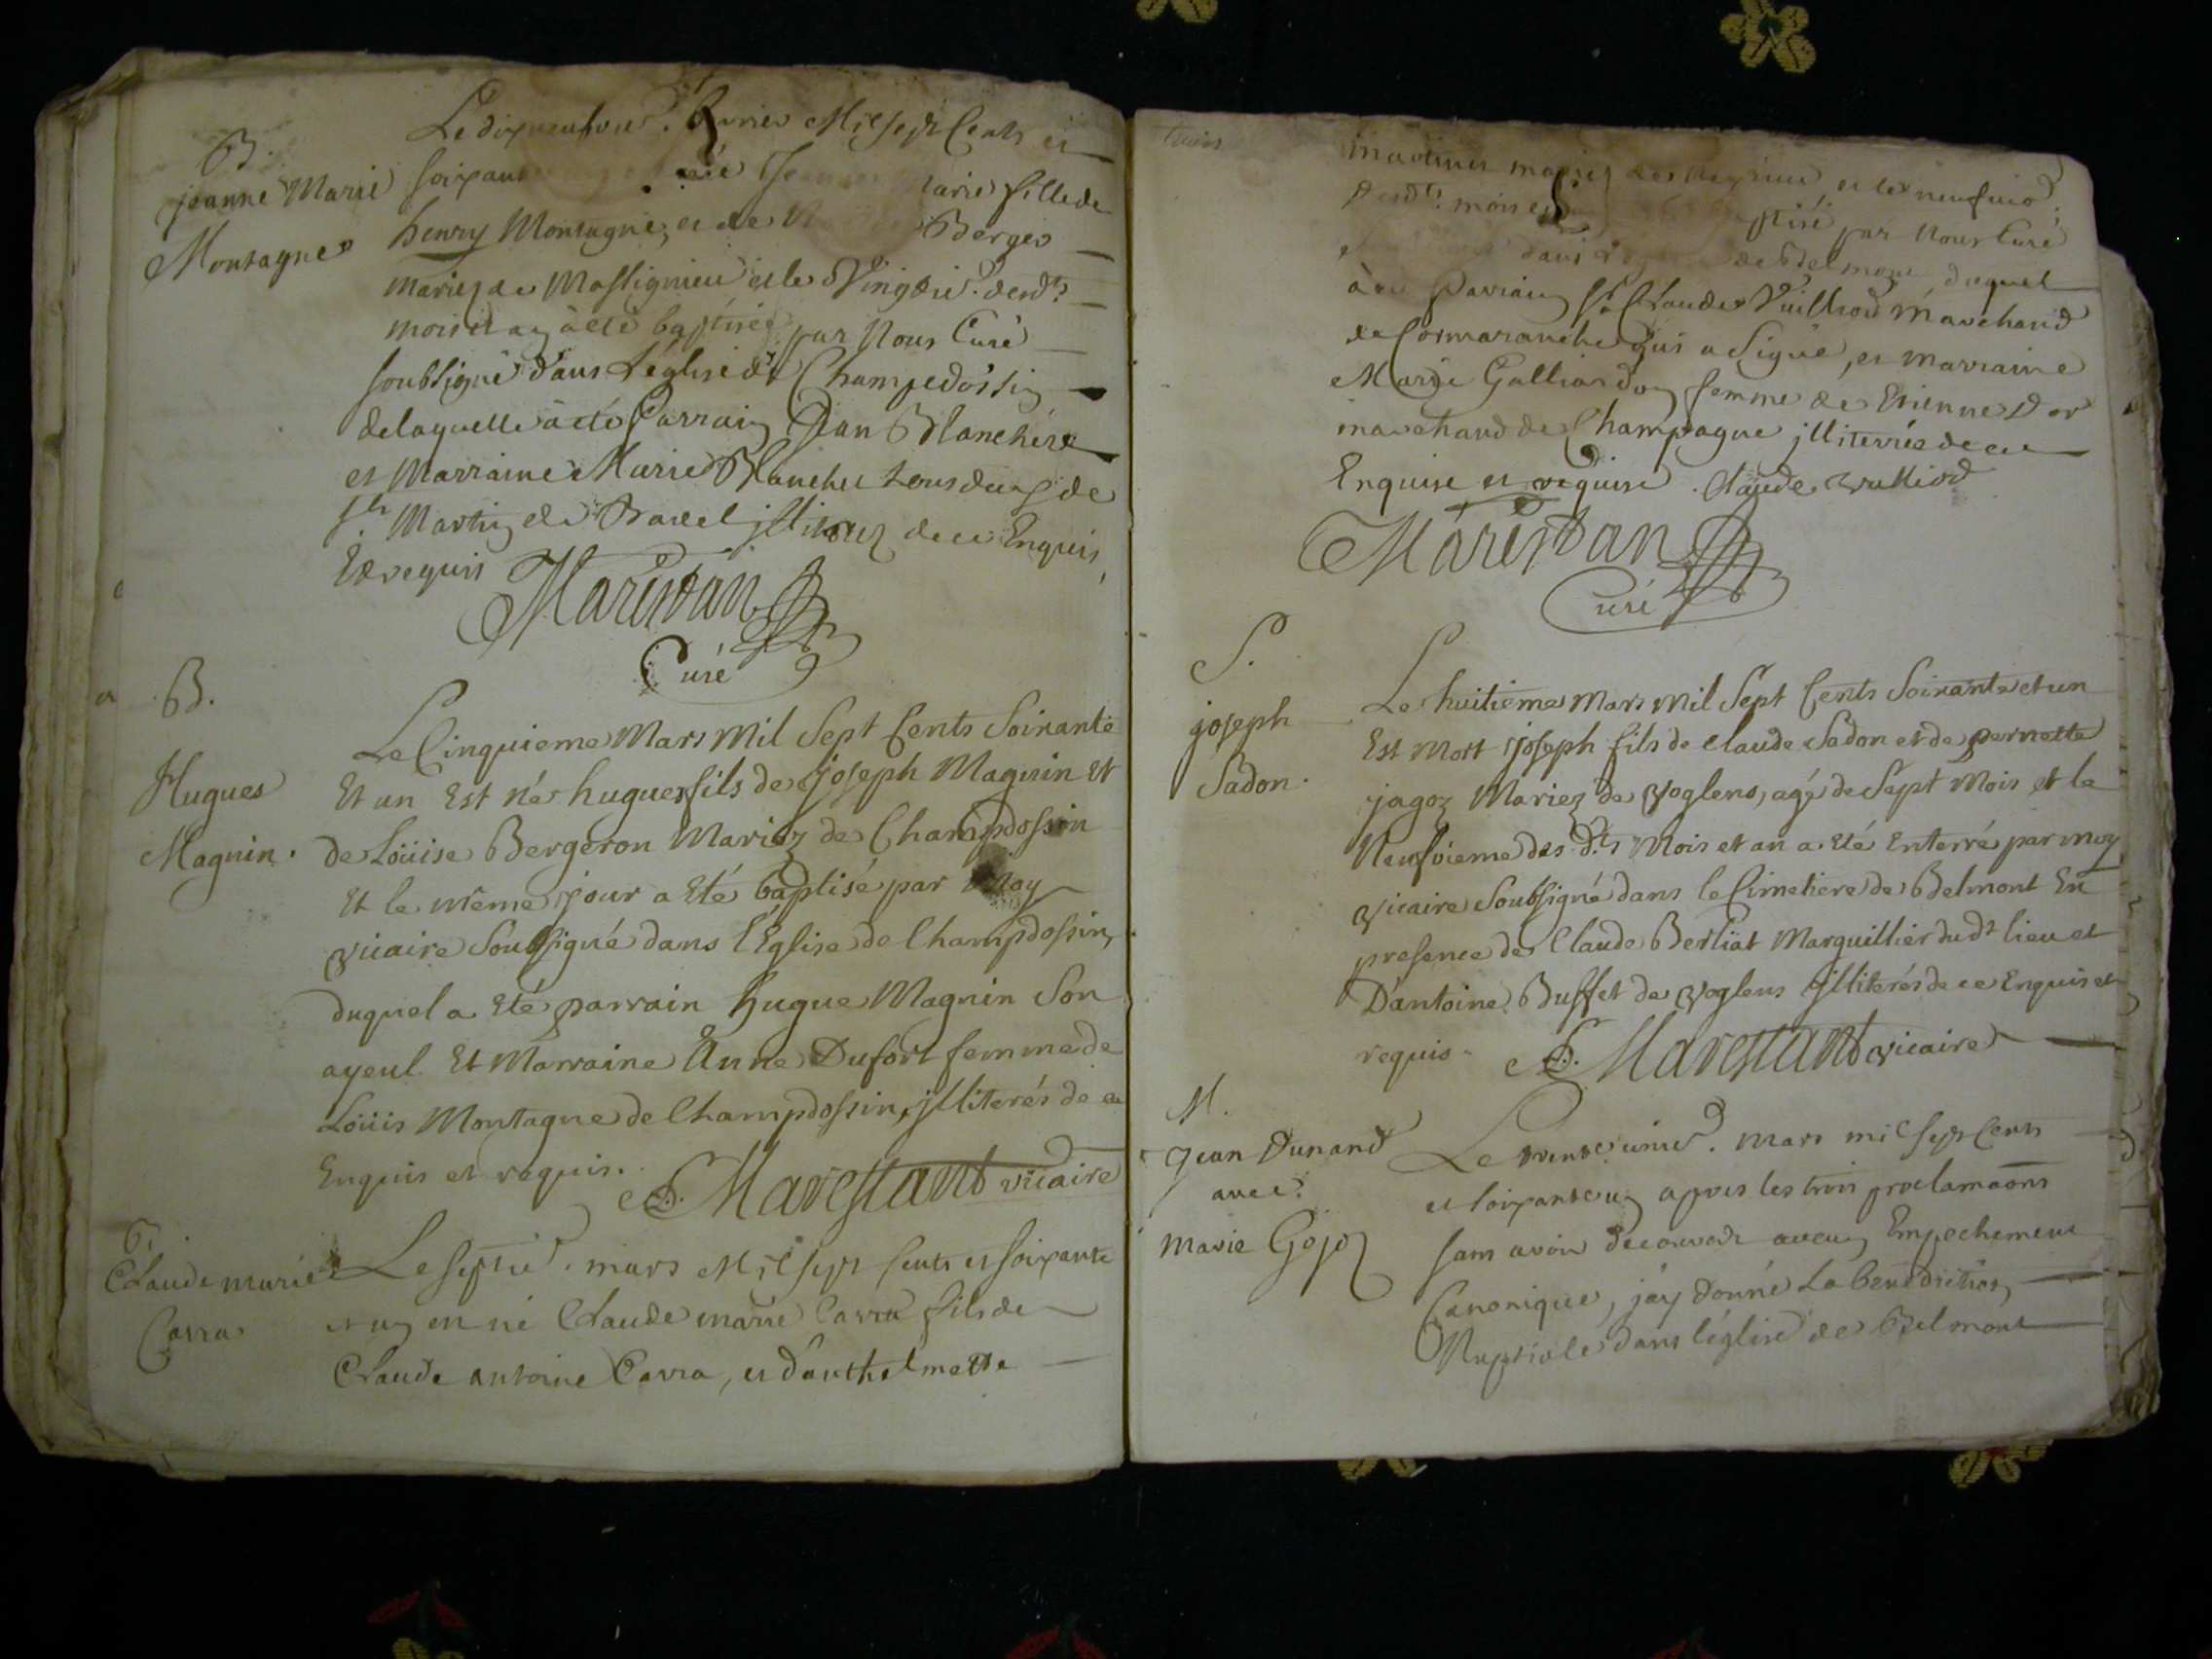 B.
jeanne Marie
Montagne
Le dixneufvie. fevrier Mil sept Cents et
soixante née Jeanne Marie fille de
henry Montagne, et de Berger
mariez de Massignieu et le Vingtie. desdt.
mois et an à eté baptisée par Nous Curé
soubsigné dans L'église de Champedossin
delaquelle à eté Parrain Jean Blanchère
et Marraine Marie Blanchet tous deux de
St. Martin de Bavel illiterez de ce Enquis,
Et requis
Marestan
Curé
B.
Hugues
Magnin.
Le Cinquieme Mars Mil Sept Cents Soixante
Et un Est né hugues fils de joseph Magnin Et
de Loüise Bergeron Mariez de Champdossin
Et le même jour a Eté baptisé par Moy
vicaire Soubsigné dans l'Eglise de Champdossin,
duquel a Eté parrain hugue Magnin Son
ayeul Et Marraine Anne Dufort femme de
Loüis Montagne de Champdossin, jlliterés de ce
Enquis et requis.
Marestant vicaire
B.
Claude marie
Carra
Le septie. mars Mil sept Cents et soixante
et un est né Claude marie Carra fils de
Claude antoine Carra, et d'anthelmette
mariez et le neufvie.
desdts. mois et baptisé par Nous Curé
dans de Belmont, duquel
à eu Parrain Sr. Claude Vuilliod Marchand
de Cormaranche qui a signé, et marraine
Marie Galliardon femme de Etienne Dor
marchand de Champagne jlliterée de ce
Enquise et requise. Claude vulliod
Marestan
Curé
S.
joseph
Sadon.
Le huitieme Mars Mil Sept Cents Soixante et un
Est Mort joseph fils de Claude Sadon et de pernette
jagoz Mariez de voglens, agé de Sept Mois et le
Neufvieme des dts Mois et an a Eté Enterré par moy
vicaire Soubsigné dans le Cimetiere de Belmont En
presence de Claude Berliat Marguillier dudt lieu et
D'antoine Buffet de voglens jlliterés de ce Enquis et
requis
Marestant vicaire
M.
Jean Dunand
avec
Marie Gojoz
Le trente unie. mars mil sept Cents
et soixante un apres les trois proclamaons
sans avoir decouvert aucun Empechement
Canonique, j'ay donné La benediction
Nuptiale dans l'église de Belmont